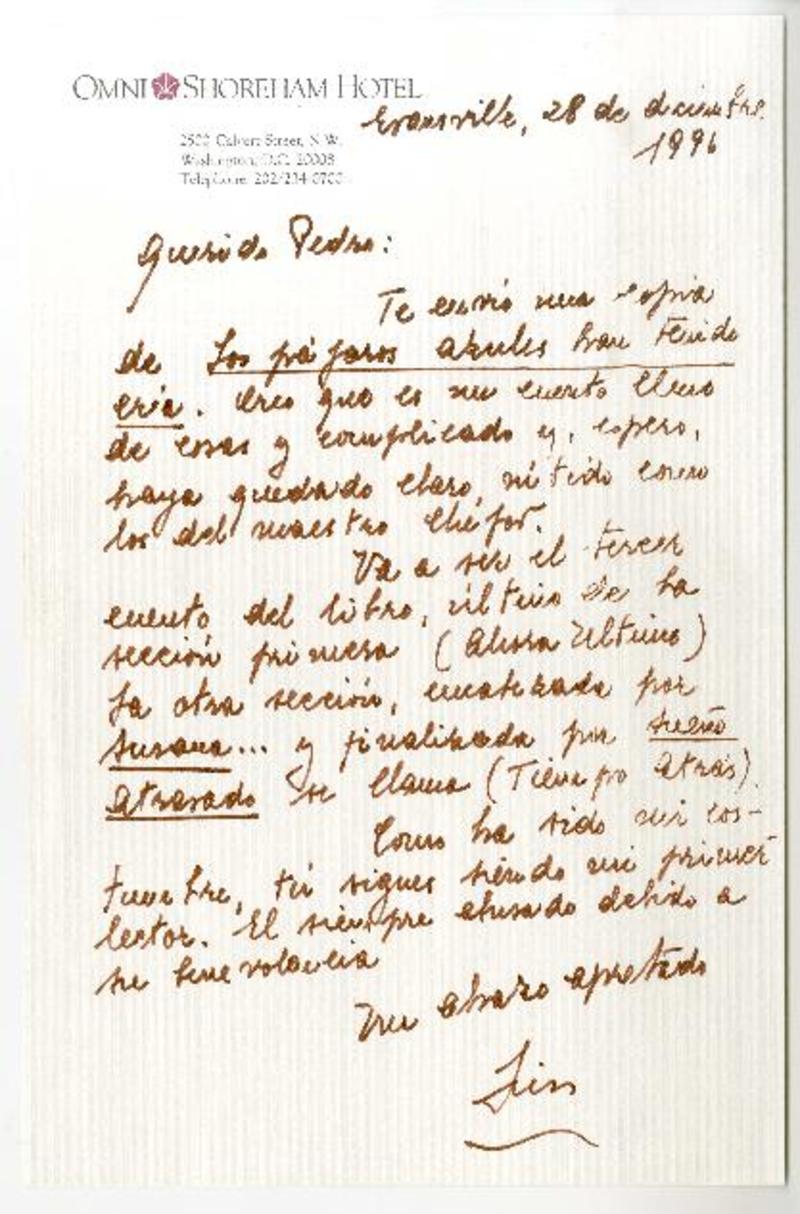 OMNI SHOREHAM HOTEL
2500 Calvert Street, N.W.
Washington, D.C. 20008
Telephone: 202/234-0700
Evansville, 28 de diciembre
1996
Querido Pedro:
Te envío una copia
de Los pájaros azules han tenido
cría. Creo que es un cuento lleno
de cosas y complicado y, espero,
haya quedado claro, nítido como
los del maestro
Va a ser el tercer
cuento del libro, último de la
sección primera (Ahora Ultimo)
La otra sección, por
Susana... y finalizada por sueño
atrasado se llama (Tiempo Atrás).
Como ha sido mi cos-
tumbre, tú sigues siendo mi primer
lector. El siempre abusado debido a
su benevolencia
Un abrazo apretado